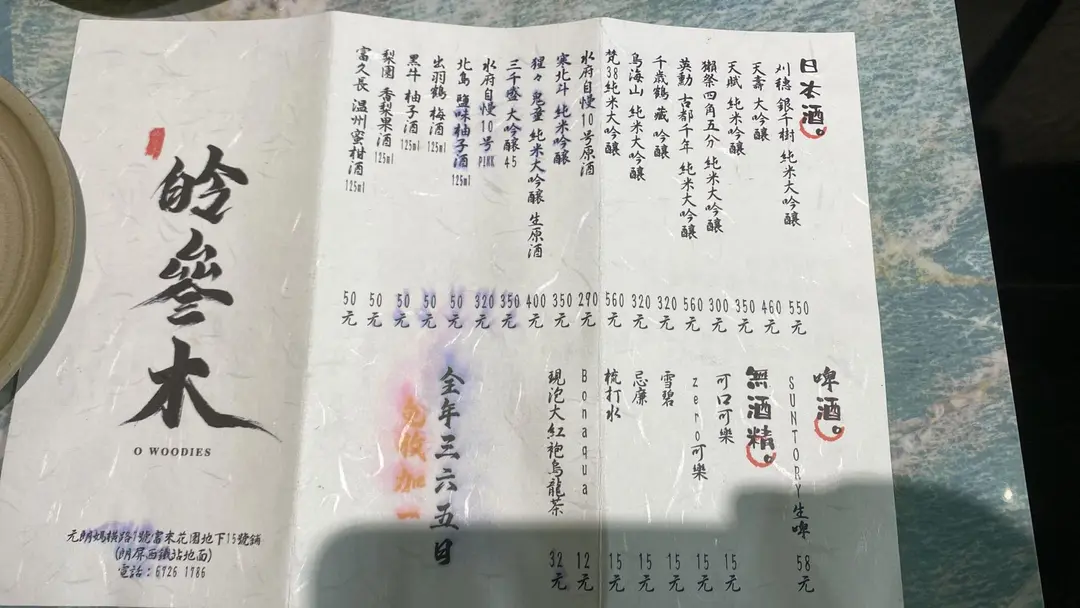 日本酒。
刈穂 銀千樹 純米大吟釀 550元
天壽 大吟釀 460元
天賦 純米吟釀 350元
獺祭四角五八分 純米大吟釀 300元
英勳 古都千年 純米大吟釀 560元
千歲鶴 藏 吟釀 320元
鳥海山 純米大吟釀 320元
梵38純米大吟釀 560元
水府自慢10号原酒 290元
寒北斗 純米吟釀 350元
猩々 鬼童 純米大吟釀 生原酒 400元
三千盛 大吟釀 45 350元
水府自慢10号 PINK 320元
北島 鹽味柚子酒 125ml 50元
出羽鶴 梅酒 125ml 50元
黑牛 柚子酒 125ml 50元
梨園 香梨果酒 125ml 50元
富久長 溫州蜜柑酒 125ml 50元
啤酒。
SUNTORY生啤 58元
無酒精。
可口可樂 15元
zero可樂 15元
雪碧 15元
忌廉 15元
梳打水 15元
Bonaqua 12元
現泡大紅袍烏龍茶 32元
全年三六五日
免收加一
皊參木
O WOODIES
元朗媽橫路1號富來花園地下15號鋪
(朗屏西鐵站地面)
電話：6726 1786